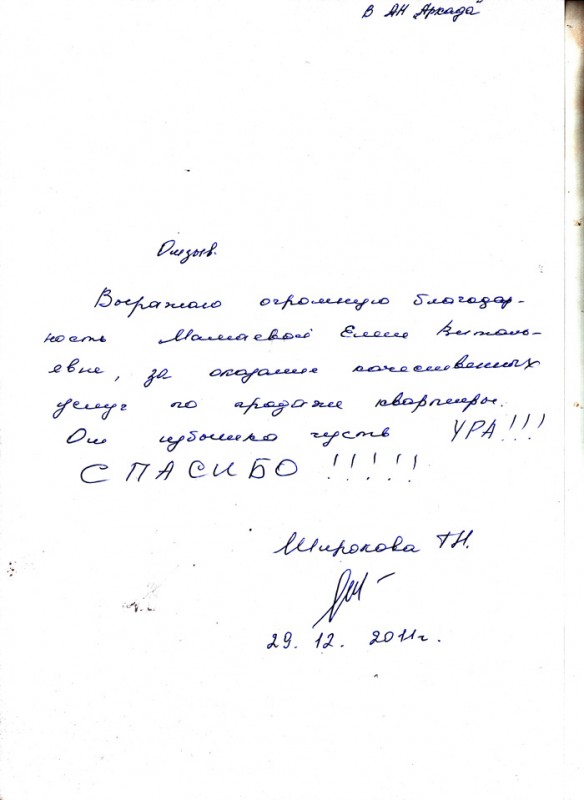 В АН „Аркада"
Отзыв.
Выражаю огромную благодар-
ность Мамаевой Елене Виталь-
евне, за оказание качественных
услуг по продаже квартиры.
От избытка чувств УРА!!!
СПАСИБО !!!!!
Широкова Т.Н.
29. 12. 2011г.